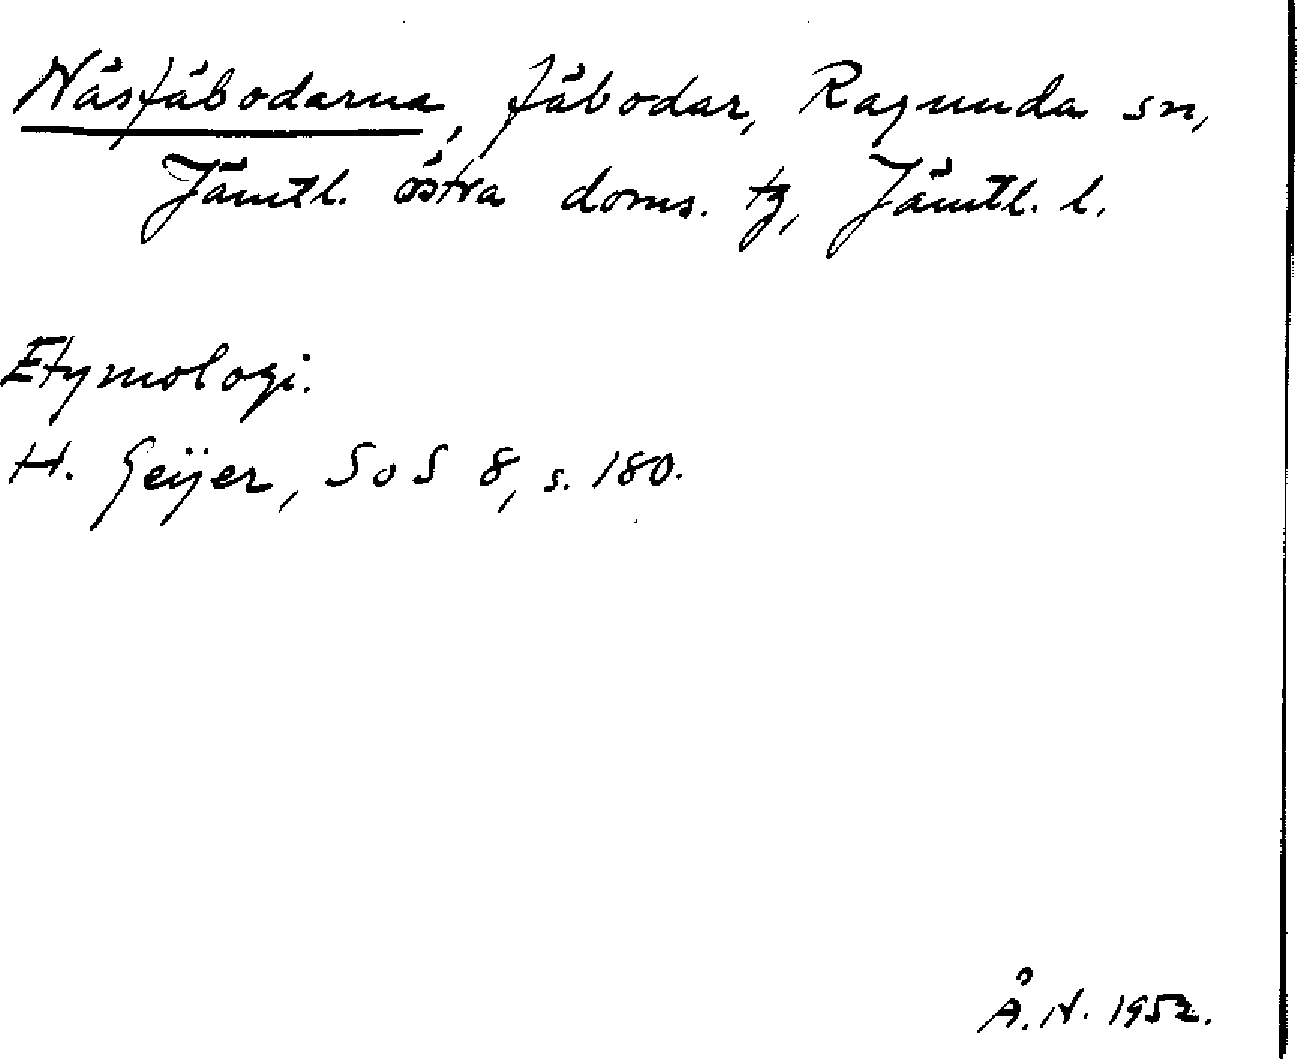 Näsfäbodarna, fäbodar, Ragunda sn,
Jämtl. östra doms. tg, Jämtl. l.
Etymologi.
H. Geijer, SoS 8, s. 180.
Å. N. 1952.